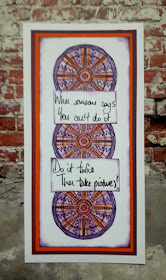 When someone says
You can't do it
Do it twice
Then take pictures!